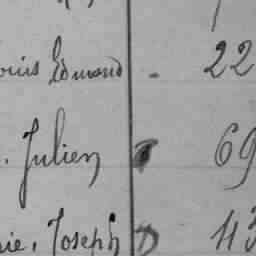 ouis Edmond . 22
. Julien 69
ie, Joseph D 43